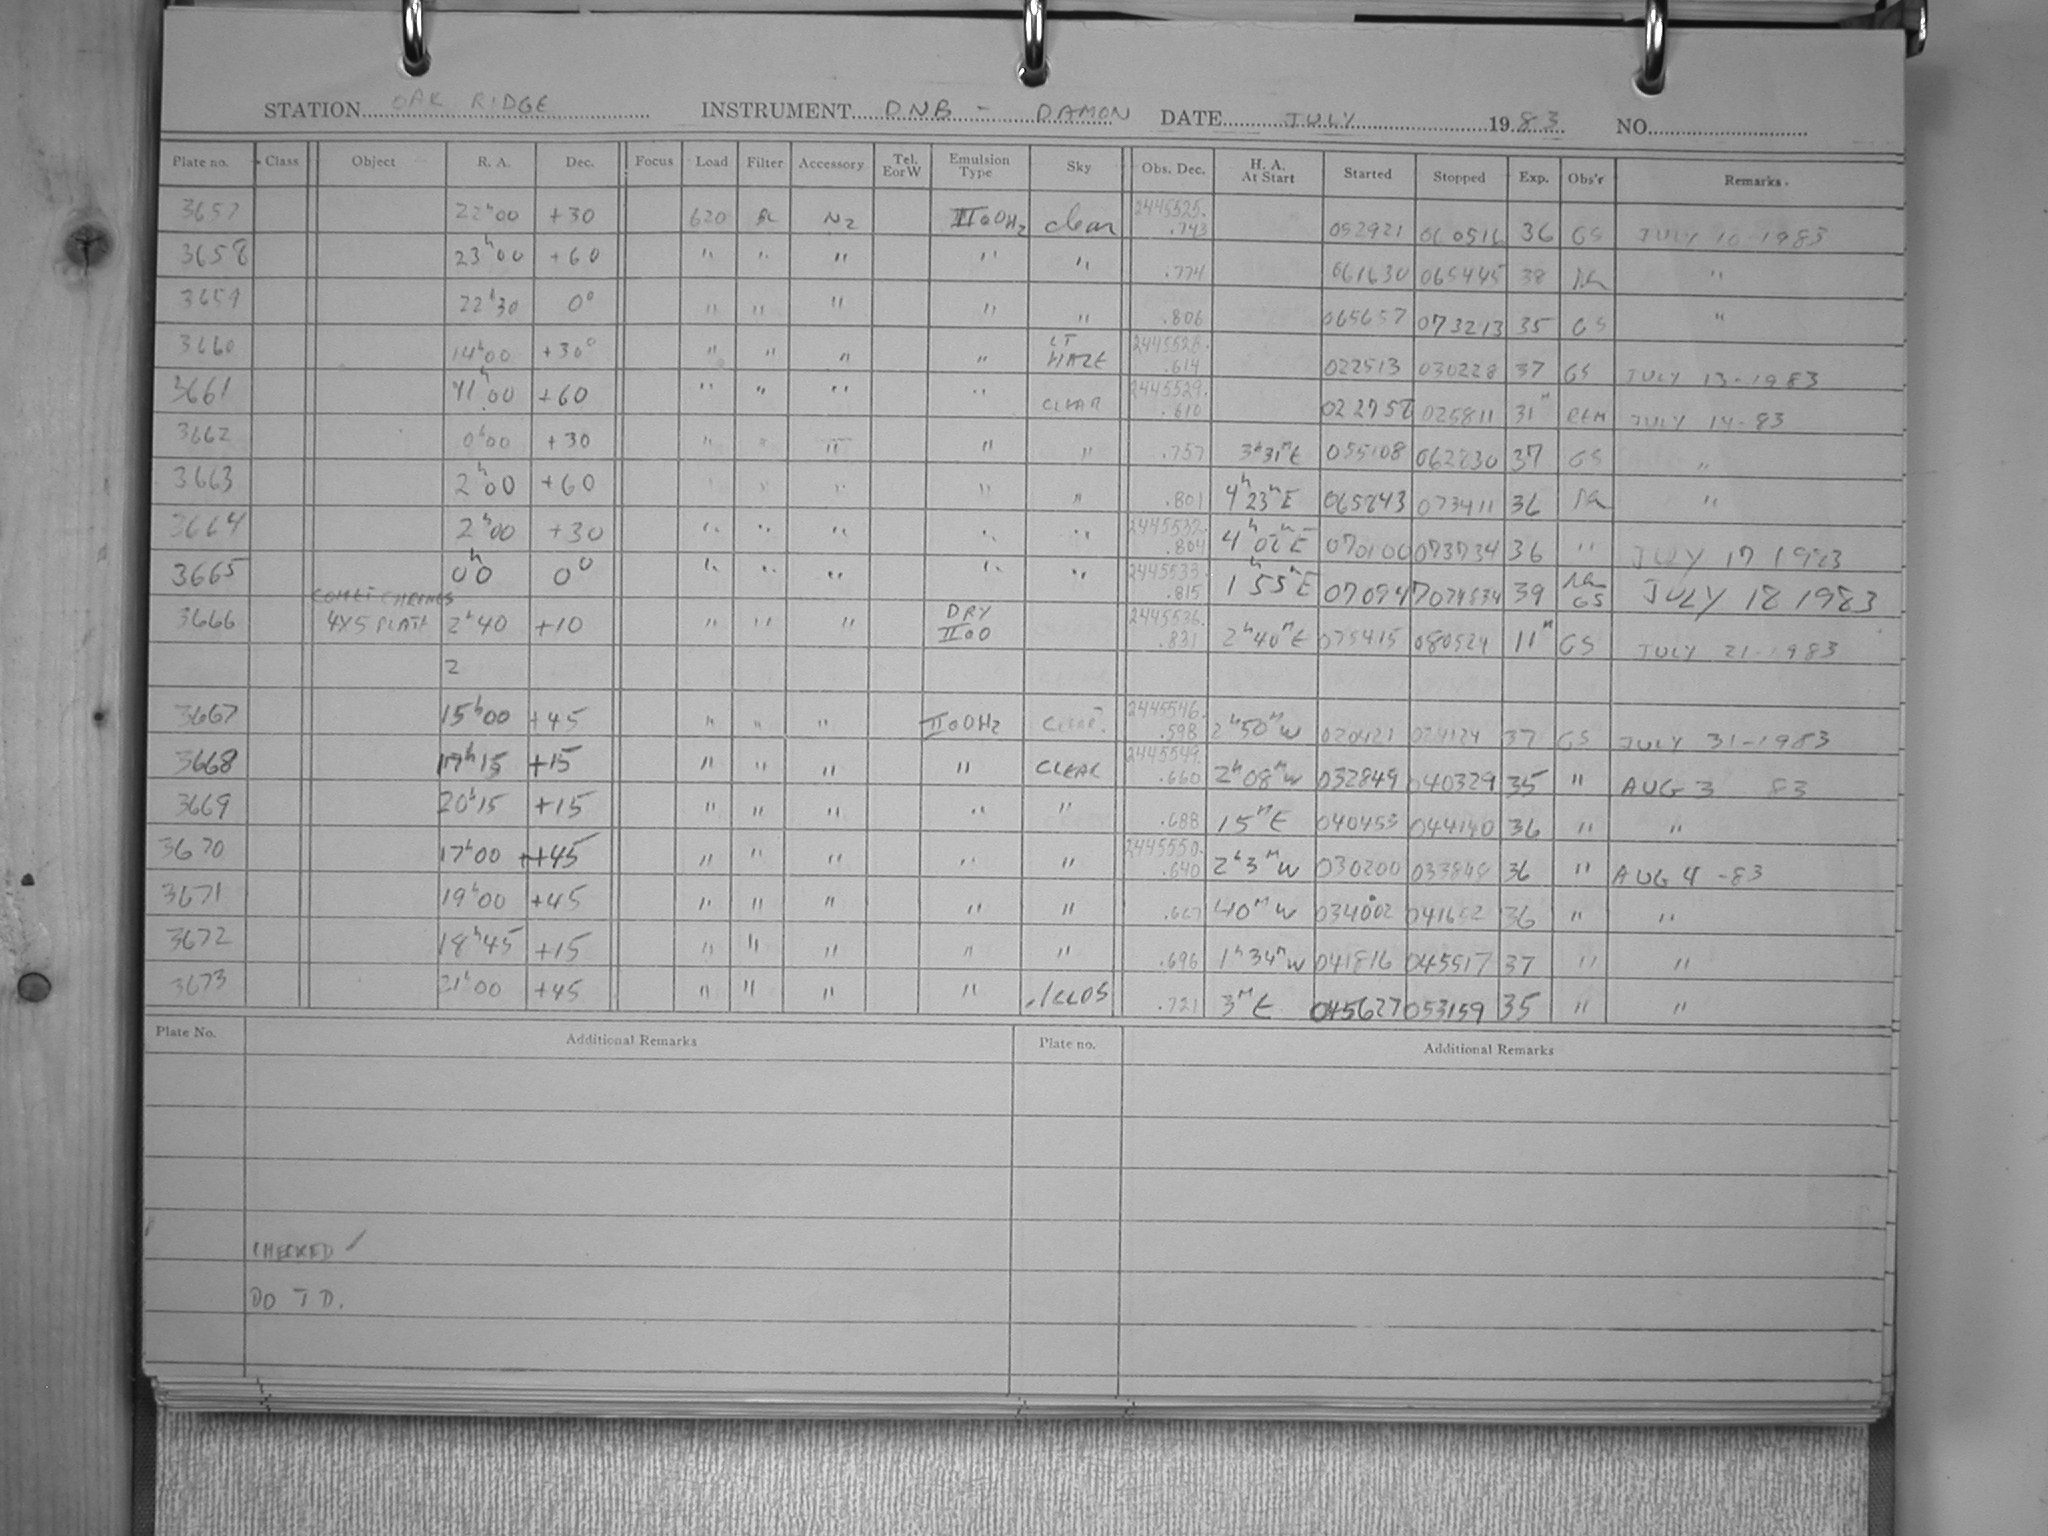 STATION OAK RIDGE INSTRUMENT DNB - DAMON DATE JULY 1983 NO.
Plate no. Class Object R. A. Dec. Focus Load Filter Accessory Tel. EorW Emulsion Type Sky Obs. Dec. H. A. At Start Started Stopped Exp. Obs'r Remarks
3657 22h00 +30 620 BL N2 IIaOH2 clear 2445525. .743 052921 060516 36 GS JULY 10-1983
3658 23h00 +60 " " " " " .774 061630 065445 38 "
3659 22h30 0° " " " " " .806 065657 073213 35 GS "
3660 14h00 +30° " " " " LT HAZE 2445528. .614 022513 030228 37 GS JULY 13-1983
3661 +60 " " " " CLEAR 2445529. .610 022758 025811 31M REM JULY 14-83
3662 0h00 +30 " " " " " .757 3h31ME 055108 062830 37 GS "
3663 2h00 +60 " " " " " .801 4h23ME 065843 073411 36 "
3664 2h00 +30 " " " " " 2445532. .804 4h02ME 070100 073734 36 " JULY 17 1983
3665 0h0 0° " " " " " 2445533. .815 1h55ME 070947 074834 39 GS JULY 18 1983
3666 4X5 PLATE 2h40 +10 " " " DRY IIaO 2445536. .831 2h40ME 075415 080524 11M GS JULY 21-1983
2
3667 15h00 +45 " " " IIaOH2 CLEAR? 2445546. .598 2h50MW 020421 024124 37 GS JULY 31-1983
3668 17h15 +15 " " " " CLEAR 2445549. .660 2h08MW 032849 040329 35 " AUG 3 83
3669 20h15 +15 " " " " " .688 15ME 040453 044140 36 " "
3670 17h00 +45 " " " " " 2445550. .640 2h3MW 030200 033848 36 " AUG 4 -83
3671 19h00 +45 " " " " " .667 40MW 034002 041652 36 " "
3672 18h45 +15 " " " " " .696 1h34MW 041816 045517 37 " "
3673 21h00 +45 " " " " .721 3ME 045627 053159 35 " "
Plate No. Additional Remarks Plate no. Additional Remarks
CHECKED ✓
DO T D.